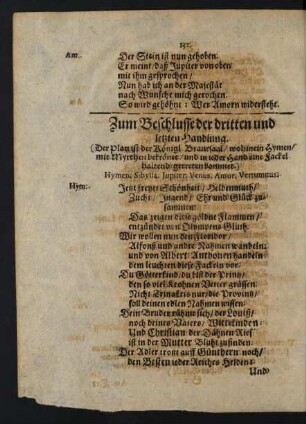 Am. Der Stein ist nun gehoben.
Er meint/ daß Jupiter von oben
mit ihm gesprochen/
Nun hab ich an der Majestät
nach Wunsche mich gerochen.
So wird gehöhnt: Wer Amorn widersteht.
Zum Beschlusse der dritten und
letzten Handlung.
(Der Platz ist der Königl. Brautsaal/ wohinein Hymen/
mit Myrthen bekrönet/ und in jeder Hand eine Fackel
haltend/ getreten kommet.)
Hymen, Sibylla, Jupiter, Venus, Amor, Vertumnus.
Hym: Jetzt freyet Schönheit/ Heldenmuth/
Zucht/ Jugend/ Ehr und Glück zu-
sammen:
Das zeigen diese göldne Flammen/
entzündet von Olympens Gluth.
Wir wollen nun den
Alfons und andre Nahmen wandeln:
und von Albert Anthonen handeln
dem leuchten diese Fackeln vor.
Du Götterkind/ du bist der Printz/
den so viel Krohnen Vetter grüssen:
Nicht nur/ die Provintz/
soll deinen edlen Nahmen wissen.
Dein Bruder rühme sich/ der Louiß/
noch deines Vaters/ Wittekinden:
Und Christian der Dähnen Ries
ist in der Mutter Bluht zufinden.
Der Adler trotzt auff Günthern noch/
den Besten jeder Reiches Helden:
Und